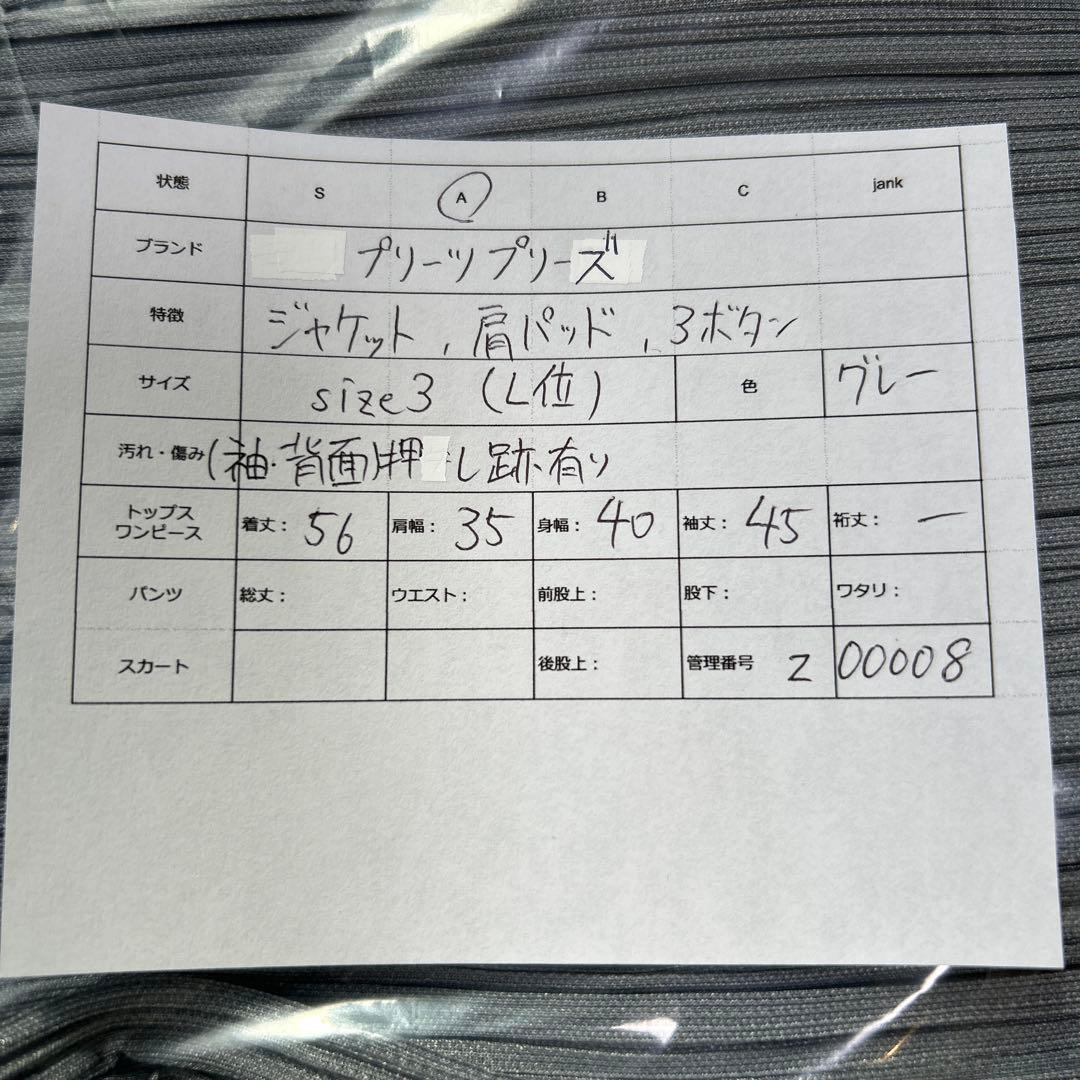 状態 S A B C jank
ブランド プリーツプリーズ
特徴 ジャケット, 肩パッド, 3ボタン
サイズ size3 (L位) 色 グレー
汚れ・傷み (袖・背面)押し跡有り
トップス
ワンピース 着丈: 56 肩幅: 35 身幅: 40 袖丈: 45 裄丈: ー
パンツ 総丈: ウエスト: 前股上: 股下: ワタリ:
スカート 後股上: 管理番号 Z 00008